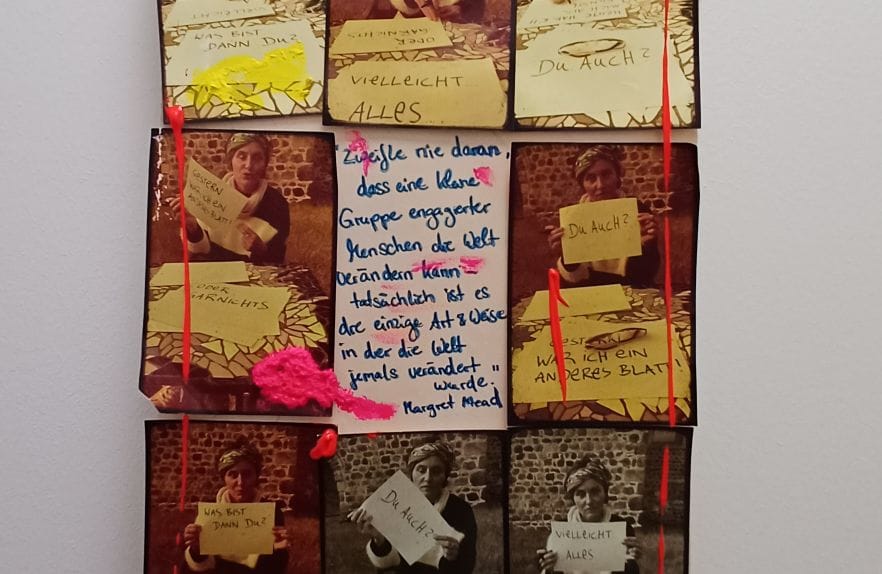 WAS BIST
DANN DU?
ODER
GARNICHTS
VIELLEICHT
ALLES
DU AUCH?
GESTERN
WAR ICH EIN
ANDERES BLATT!
ODER
GARNICHTS
"Zweifle nie daran,
dass eine kleine
Gruppe engagierter
Menschen die Welt
verändern kann –
tatsächlich ist es
die einzige Art & Weise
in der die Welt
jemals verändert
wurde."
Margret Mead
DU AUCH?
GESTERN
WAR ICH EIN
ANDERES BLATT!
WAS BIST
DANN DU?
DU AUCH?
VIELLEICHT
ALLES